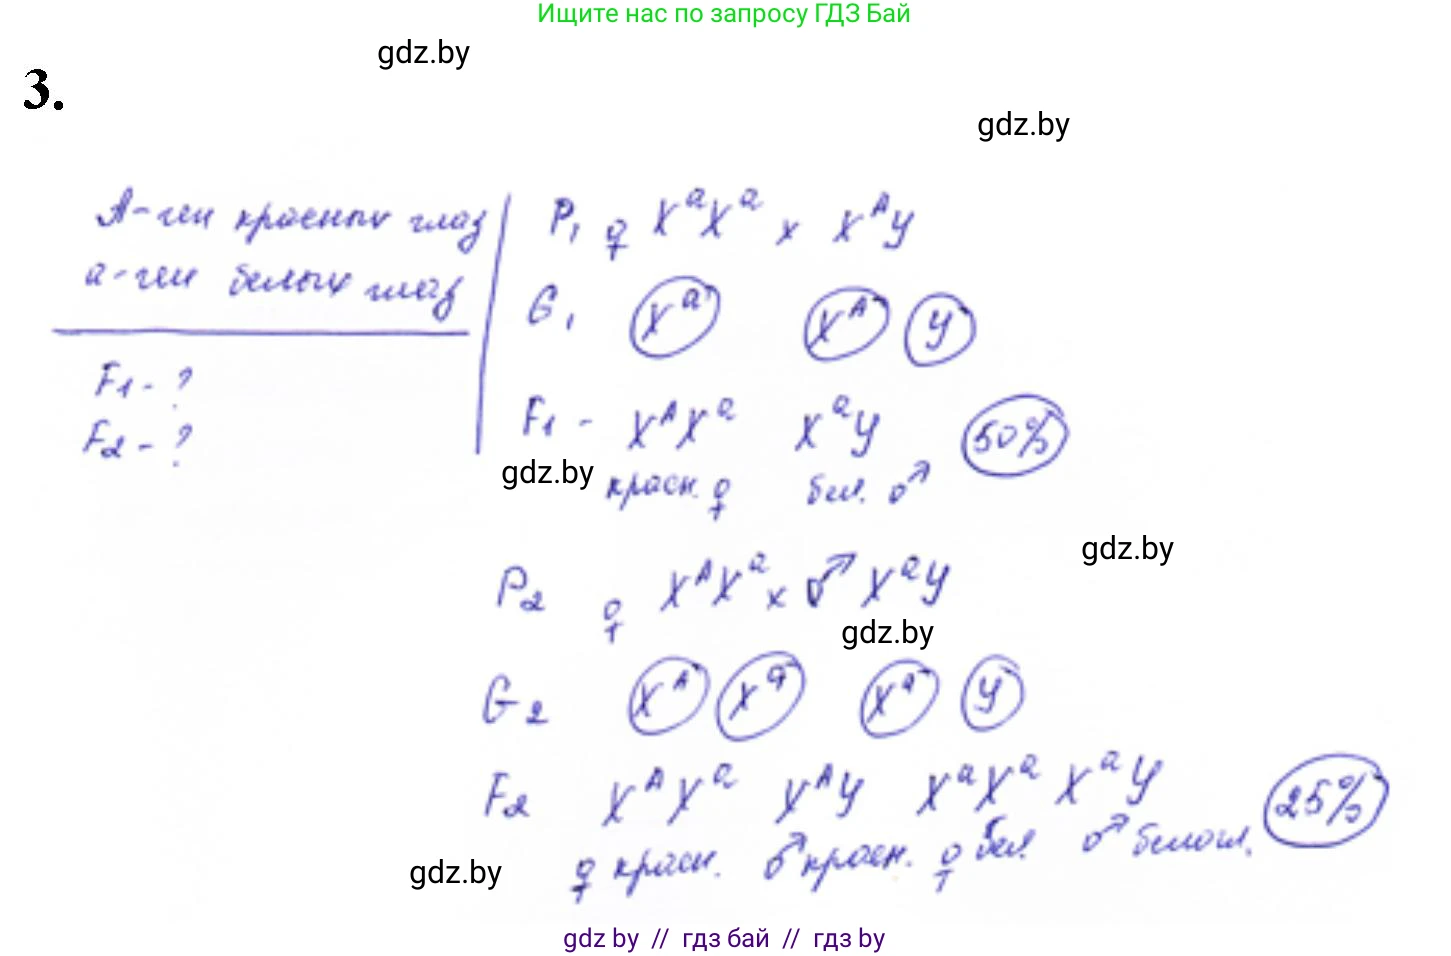 Ищите нас по запросу ГДЗ Бай
gdz.by
3.
gdz.by
А-ген красных глаз
а-ген белых глаз
F1 - ?
F2 - ?
P1 ♀ XᵃXᵃ x XᴬY
G1 Xᵃ Xᴬ Y
F1 - XᴬXᵃ XᵃY 50%
gdz.by
красн. ♀ бел. ♂
gdz.by
P2 ♀ XᴬXᵃ x ♂ XᵃY
gdz.by
G2 Xᴬ Xᵃ Xᵃ Y
F2 XᴬXᵃ XᴬY XᵃXᵃ XᵃY 25%
♀ красн. ♂ красн. ♀ бел. ♂ белогл.
gdz.by
gdz by // гдз бай // гдз by